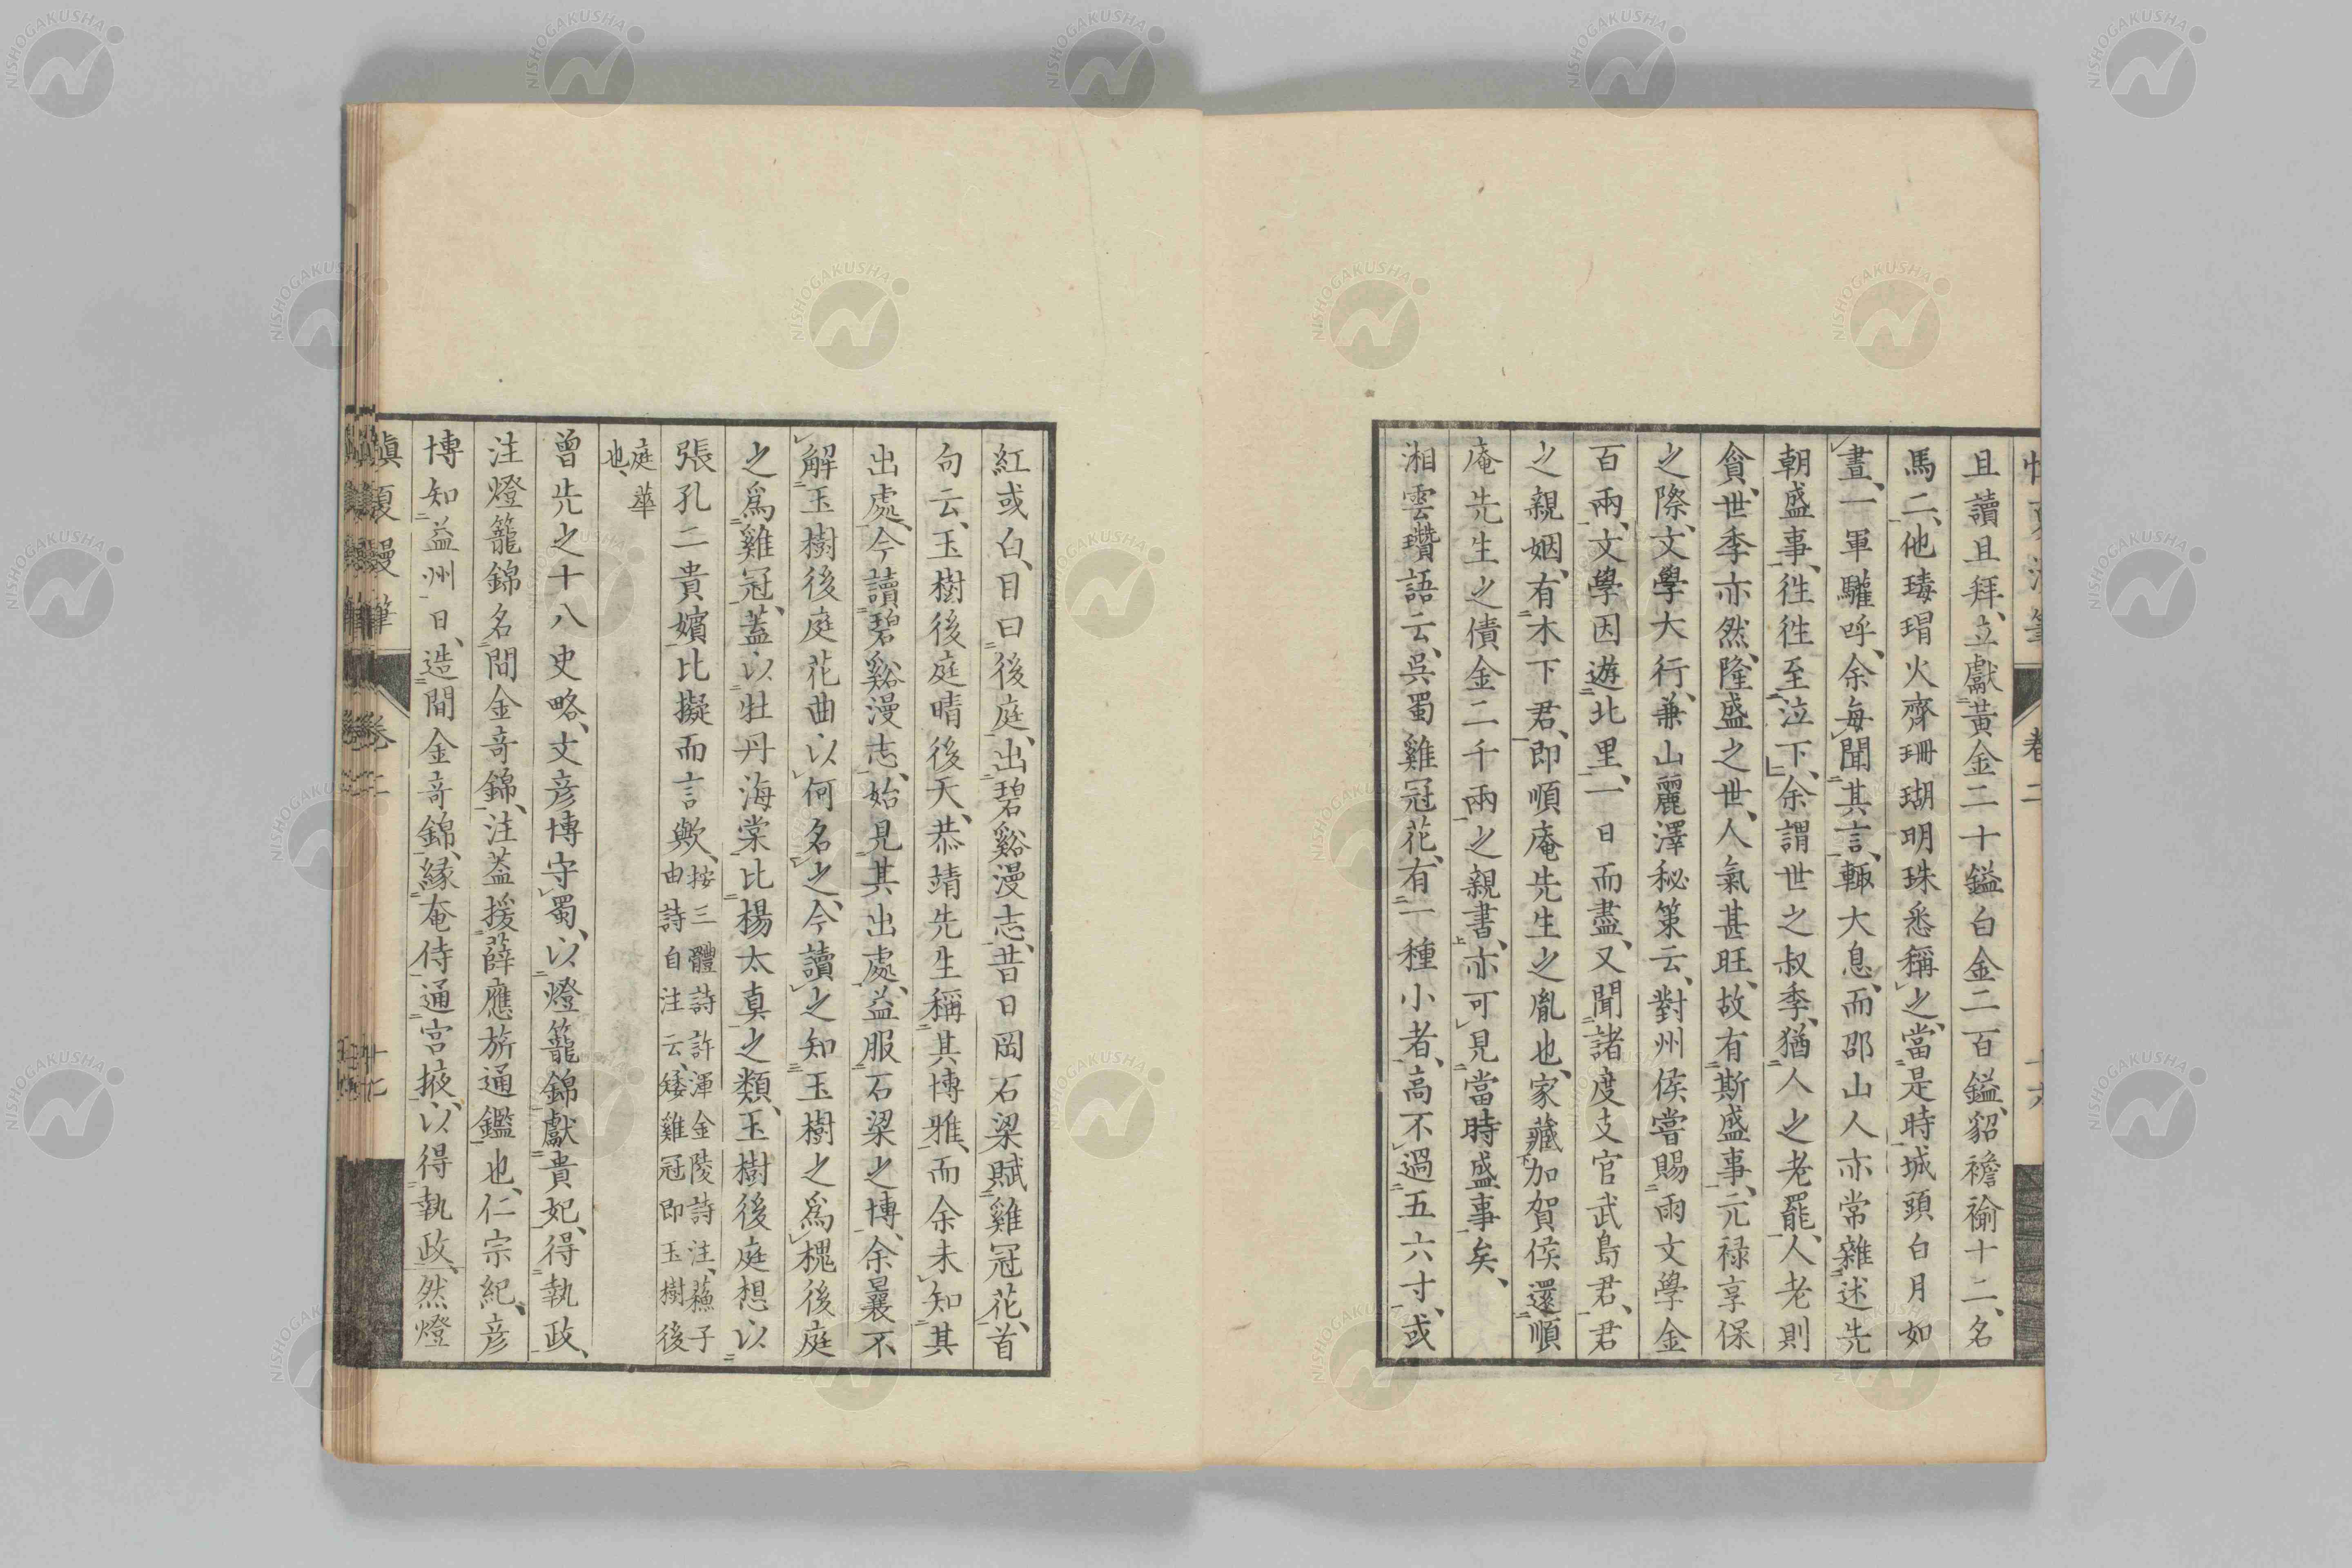 且讀且拜、立獻黃金二十鎰白金二百鎰、貂襜褕十二、名
馬二、他瑇瑁火齊珊瑚明珠悉稱之、當是時城頭白月如
晝、一軍驩呼、余每聞其言、輙大息、而邵山人亦常雜述先
朝盛事、徃徃至泣下、余謂世之叔季、猶人之老罷、人老則
貧、世季亦然、隆盛之世、人氣甚旺、故有斯盛事、元禄享保
之際、文學大行、兼山麗澤秘策云、對州侯嘗賜雨文學金
百兩、文學因遊北里、一日而盡、又聞諸度支官武島君、君
之親姻、有木下君、即順庵先生之胤也、家藏加賀侯還順
庵先生之債金二千兩之親書、亦可見當時盛事矣、
湘雲瓚語云、吳蜀雞冠花、有一種小者、高不過五六寸、或
紅或白、目曰後庭、出碧谿漫志、昔日岡石梁賦雞冠花、首
句云、玉樹後庭晴後天、恭靖先生稱其博雅、而余未知其
出處、今讀碧谿漫志、始見其出處、益服石梁之博、余曩不
解玉樹後庭花曲、以何名之、今讀之知玉樹之爲槐後庭
之爲雞冠、蓋以牡丹海棠比楊太真之類、玉樹後庭想以
張孔二貴嬪比擬而言歟、按三體詩許渾金陵詩注、蘓子
由詩自注云、矮雞冠即玉樹後
庭華
也、
曾先之十八史略、文彦博守蜀、以燈籠錦獻貴妃、得執政、
注燈籠錦名間金奇錦、注葢援薛應旂通鑑也、仁宗紀、彦
博知益州日、造間金奇錦、縁奄侍通宮掖、以得執政、然燈
卷二